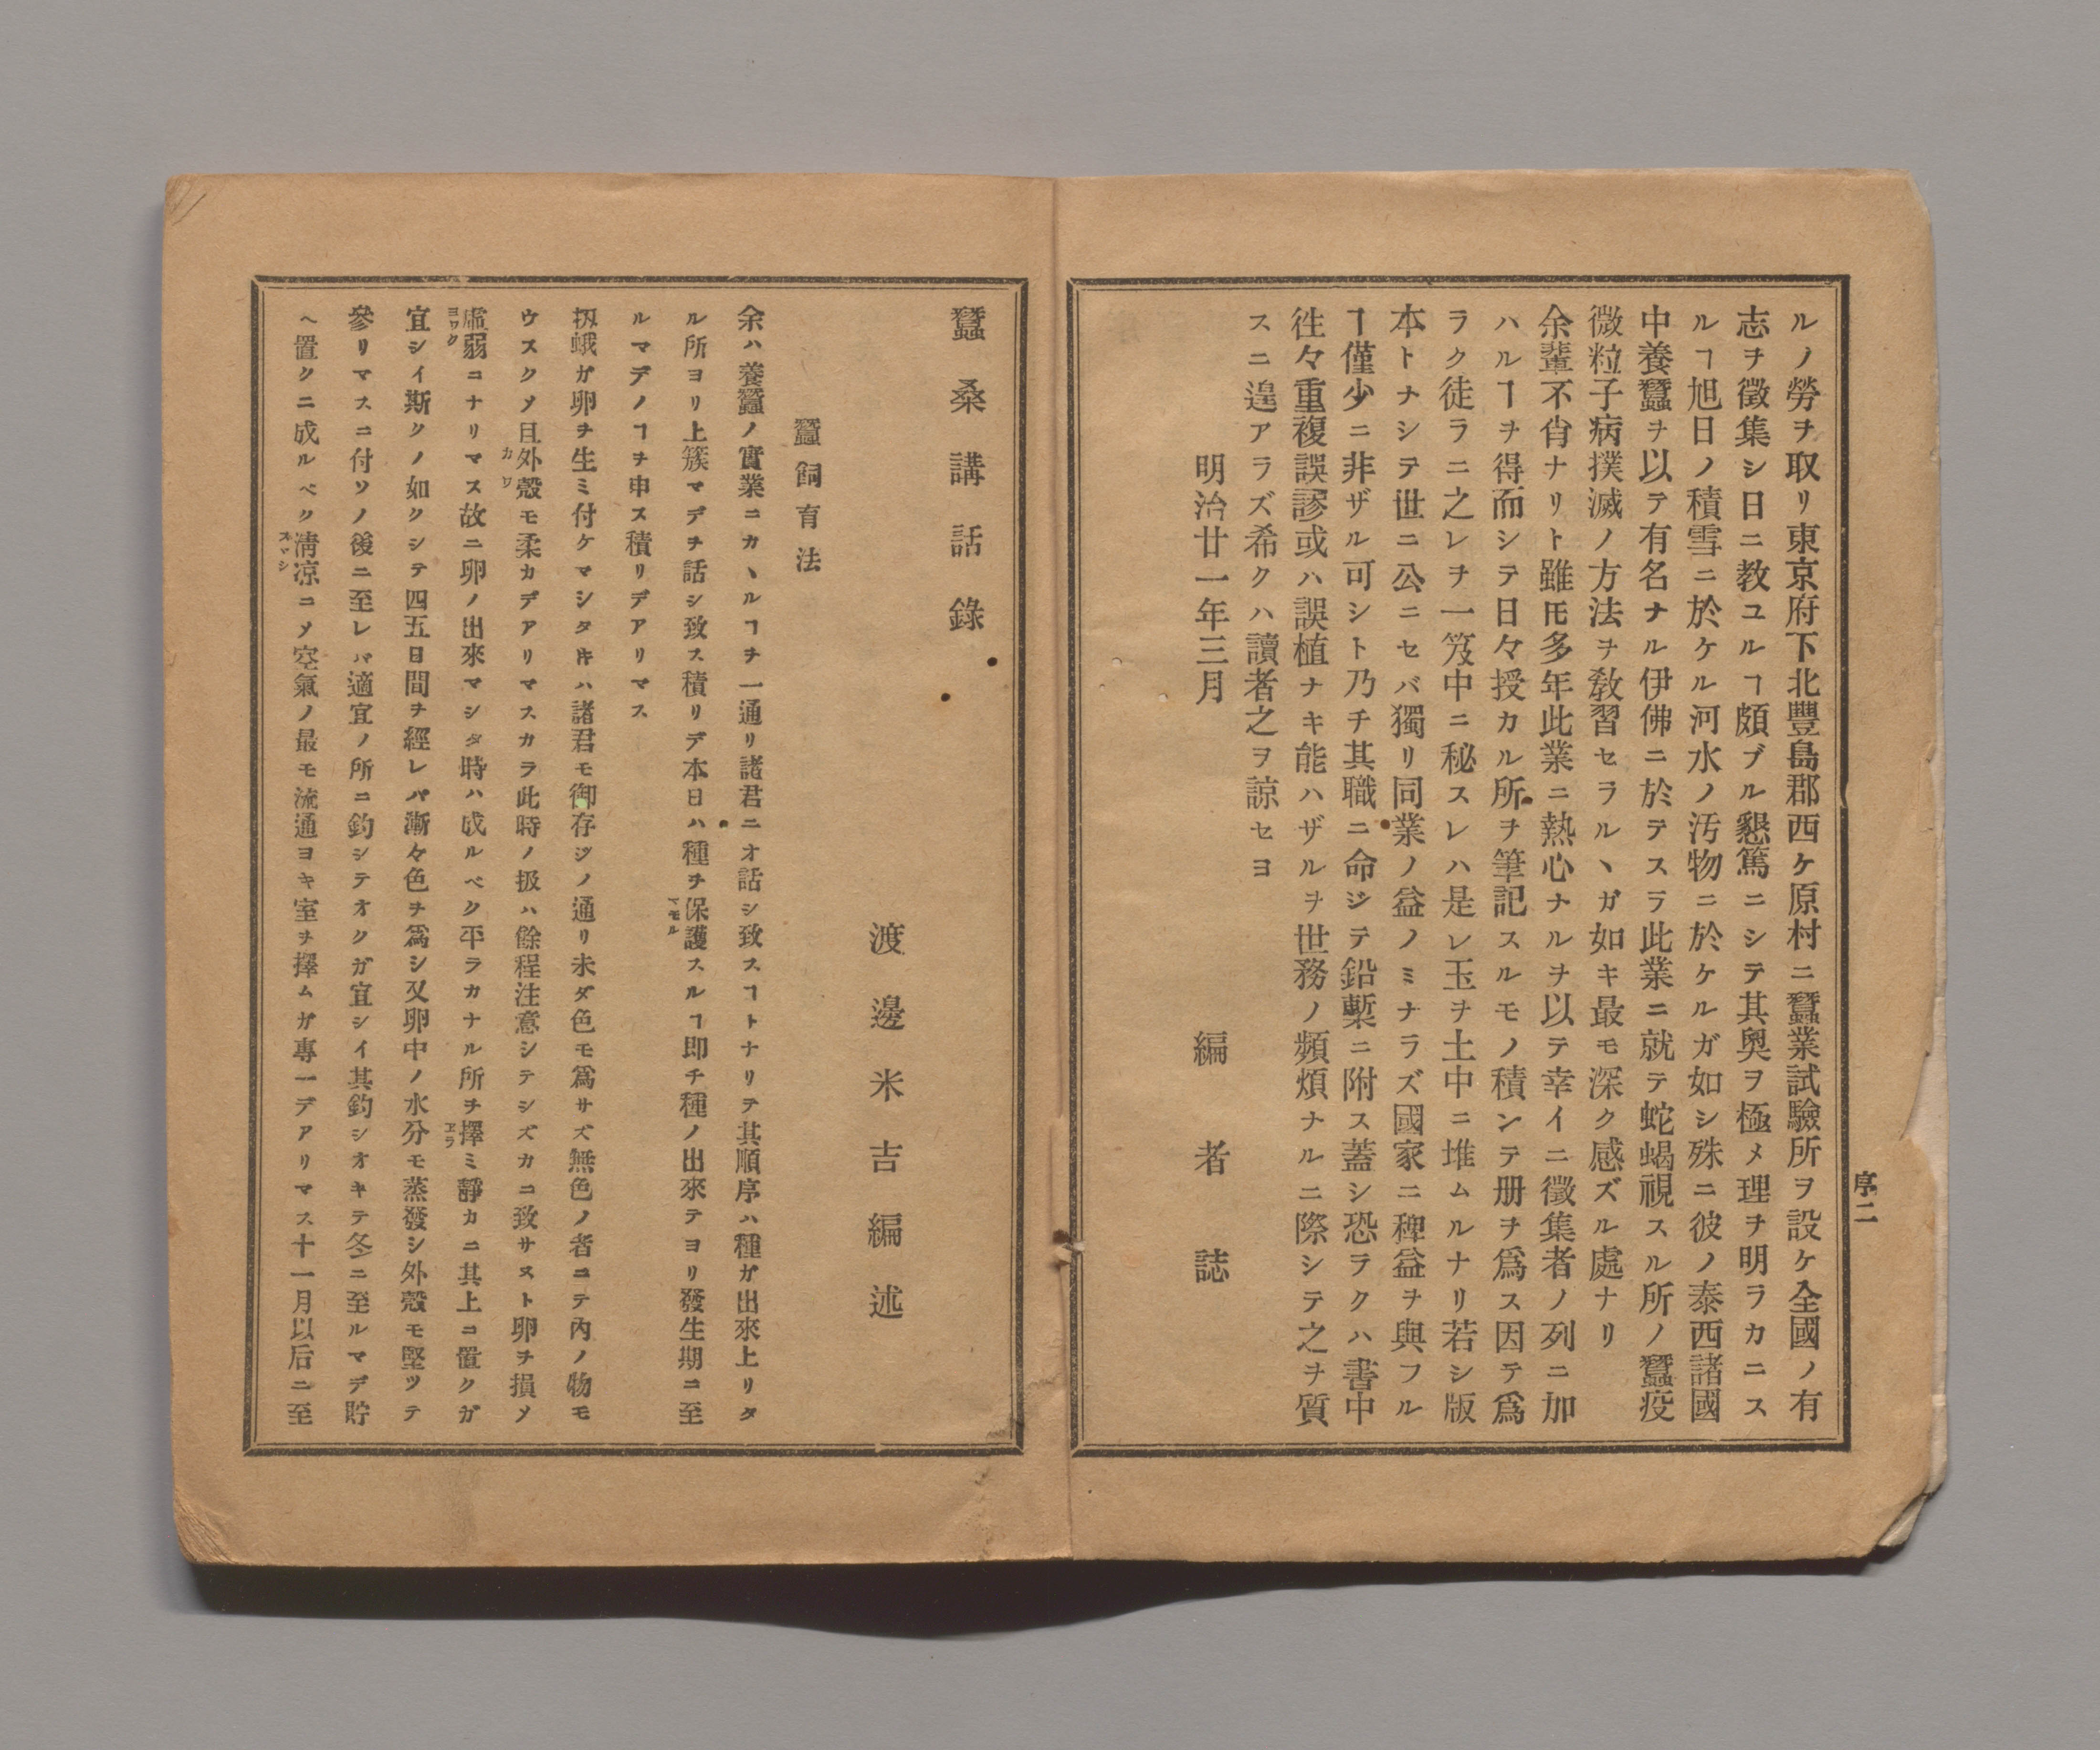 序二
ルノ勞ヲ取リ東京府下北豐島郡西ケ原村ニ蠶業試驗所ヲ設ケ全國ノ有
志ヲ徵集シ日ニ教ユルヿ頗ブル懇篤ニシテ其奧ヲ極メ理ヲ明ラカニス
ルヿ旭日ノ積雪ニ於ケル河水ノ汚物ニ於ケルガ如シ殊ニ彼ノ泰西諸國
中養蠶ヲ以テ有名ナル伊佛ニ於テスラ此業ニ就テ蛇蝎視スル所ノ蠶疫
微粒子病撲滅ノ方法ヲ敎習セラルヽガ如キ最モ深ク感ズル處ナリ
余輩不肖ナリト雖𪜈多年此業ニ熱心ナルヲ以テ幸イニ徵集者ノ列ニ加
ハルヿヲ得而シテ日々授カル所ヲ筆記スルモノ積ンテ册ヲ爲ス因テ爲
ラク徒ラニ之レヲ一笈中ニ秘スレハ是レ玉ヲ土中ニ堆ムルナリ若シ版
本トナシテ世ニ公ニセバ獨リ同業ノ益ノミナラズ國家ニ稗益ヲ與フル
ヿ僅少ニ非ザル可シト乃チ其職ニ命ジテ鉛槧ニ附ス蓋シ恐ラクハ書中
徃々重複誤謬或ハ誤植ナキ能ハザルヲ世務ノ頻煩ナルニ際シテ之ヲ質
スニ遑アラズ希クハ讀者之ヲ諒セヨ
明治廿一年三月
編者誌
蠶桑講話錄
渡邊米吉編述
蠶飼育法
余ハ養蠶ノ實業ニカヽルヿヲ一通リ諸君ニオ話シ致スヿトナリテ其順序ハ種ガ出來上リタ
ル所ヨリ上簇マデヲ話シ致ス積リデ本日ハ種ヲ保護スルヿ即チ種ノ出來テヨリ發生期ニ至
マモル
ルマデノヿヲ申ス積リデアリマス
扨蛾ガ卵ヲ生ミ付ケマシタ𪜈ハ諸君モ御存ジノ通リ未ダ色モ爲サズ無色ノ者ニテ內ノ物モ
ウスクメ且外殼モ柔カデアリマスカラ此時ノ扱ハ餘程注意シテシズカニ致サスト卵ヲ損メ
カワ
虛弱ニナリマス故ニ卵ノ出來マシタ時ハ成ルベク平ラカナル所ヲ擇ミ靜カニ其上ニ置クガ
ヨワク
ヱラ
宜シイ斯クノ如クシテ四五日間ヲ經レバ漸々色ヲ爲シ又卵中ノ水分モ蒸發シ外殼モ堅ツテ
參リマスニ付ソノ後ニ至レバ適宜ノ所ニ釣シテオクガ宜シイ其釣シオキテ冬ニ至ルマデ貯
ヘ置クニ成ルベク淸凉ニメ空氣ノ最モ流通ヨキ室ヲ擇ムガ專一デアリマス十一月以后ニ至
スヾシ